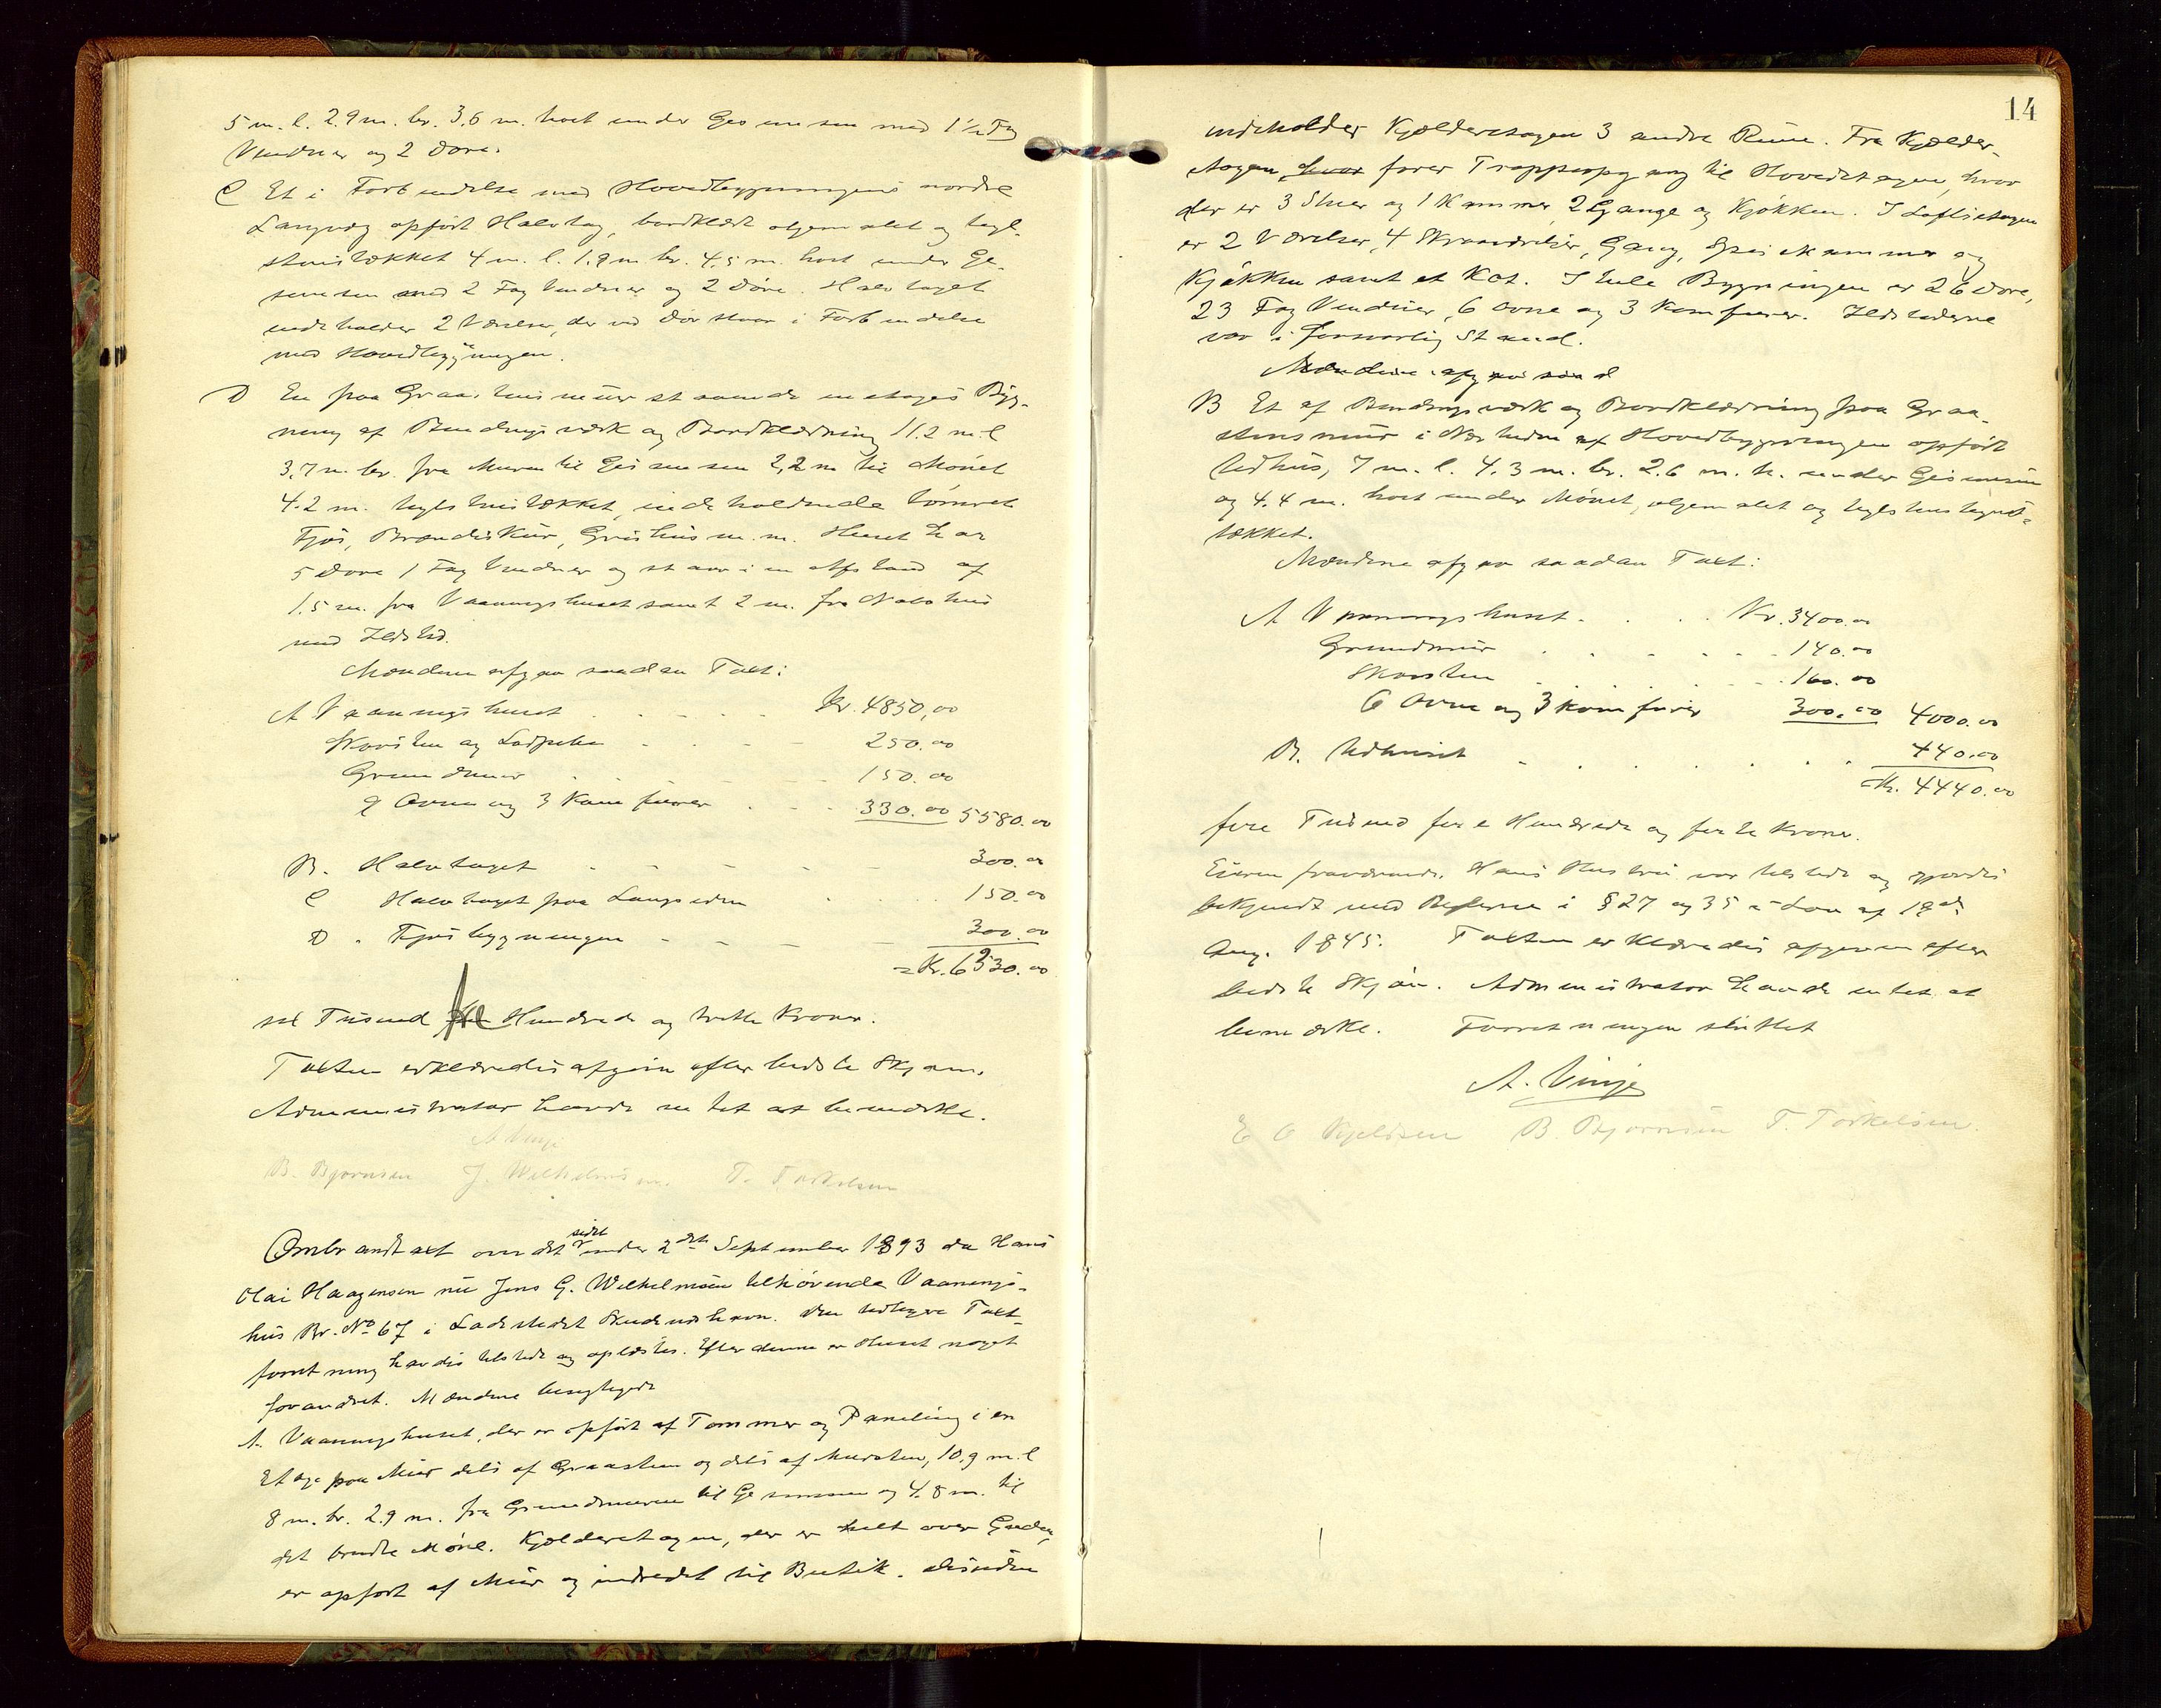 5 m. l. 2.9 m. br. 3.6 m. høit under Gesimsen med 1½ Fag
Vinduer og 2 Døre.
C Et i Forbindelse med Hovedbygningens nordre
Langvæg opført Halvtag, bordklædt oljemalet og tagl-
stenstækket 4 m. l. 1.9 m. br. 4.5 m. høit under Ge-
simsen med 2 Fag Vinduer og 2 Døre. Halvtaget
indeholder 2 Værelser, der ved Dør staar i Forbindelse
med Hovedbygningen.
D En paa Graastensmuur staaende en etages Byg-
ning af Bindingsværk og Bordklædning 11.2 m. l
3.7 m. br. fra Muren til Gesimsen 2,2 m til Mønet
4.2 m. taglstenstækket, indeholdende tømret
Fjøs, Brændeskur, Grishus m. m. Huset har
5 Døre 1 Fag Vinduer og staar i en Afstand af
1.5 m. fra Vaaningshuset samt 2 m. fra Nabohus
med Ildsted.
Mændene afgav saadan Taxt:
A Vaaningshuset . . . . . Kr. 4850,00
Skorsten og Ladpibe . . . 250.00
Grundmur . . . . 150.00
9 Ovne og 3 Komfurer . . . 330.00 5580.00
B. Halvtaget . . . . . 300.00
C Halvtaget paa Langsiden . . . . 150.00
D. Fjøsbygningen . . . . 300.00
= Kr. 6330.00
sex Tusind tre Hundrede og tretti Kroner.
Taxten erklæredes afgiven efter bedste Skjøn.
Administrator havde intet at bemærke.
A. Vinje
B. Bjørnsen J. Wilhelmsen. T. Torkelsen
Ombrandtaxt over det sidst under 2det September 1893 da Hans
Olai Haagensen nu Jens G. Wilhelmsen tilhørende Vaanings-
hus Br. No 67 i Ladestedet Skudeneshavn. Den tidligere Taxt-
forretning havdes tilstede og oplæstes. Efter denne er Huset noget
forandret. Mændene besigtigede
A. Vaaningshuset, der er opført af Tømmer og Paneling i en
Etage paa Mur dels af Graasten og dels af Mursten, 10.9 m. l
8 m. br. 2.9 m. fra Grundmuren til Gesimsen og 4.8 m. til
det brudte Møne. Kjælderetagen, der er helt over Gaden,
er opført af Mur og indredet til Butik. Desuden
14
indeholder Kjælderetagen 3 andre Rum. Fra Kjælder-
etagen hvor fører Trappeopgang til Hovedetagen, hvor
der er 3 Stuer og 1 Kammer, 2 Gange og Kjøkken. I Loftsetagen
er 2 Værelser, 4 Skraaværelser, Gang, Spiskammer og
Kjøkken samt et Kot. I hele Bygningen er 26 Døre,
23 Fag Vinduer, 6 Ovne og 3 Komfurer. Ildstederne
var i forsvarlig Stand.
Mændene afgav saad
B Et af Bindingsværk og Bordklædning paa Graa-
stensmur i Nærheden af Hovedbygningen opført
Udhus, 7 m. l. 4.3 m. br. 2.6 m. h. under Gesimsen
og 4.4 m. høit under Mønet, oljemalet og taglstens
tækket.
Mændene afgav saadan Taxt:
A Vaaningshuset . . . . Kr. 3400.00
Grundmur . . . . . 140.00
Skorsten . . . . . 160.00
6 Ovne og 3 Komfurer 300.00 4000.00
B. Udhuset . . . . . . . 440.00
Kr. 4440.00
fire Tusind fire Hundrede og førti Kroner.
Eieren fraværende. Hans Hustru var tilstede og gjordes
bekjendt med Reglerne i § 27 og 35 i Lov af 19de
Aug. 1845. Taxten erklæredes afgiven efter
bedste Skjøn. Administrator havde intet at
bemærke. Forretningen sluttet
A. Vinje
E O Kjeldsen B. Bjørnsen T. Torkelsen.